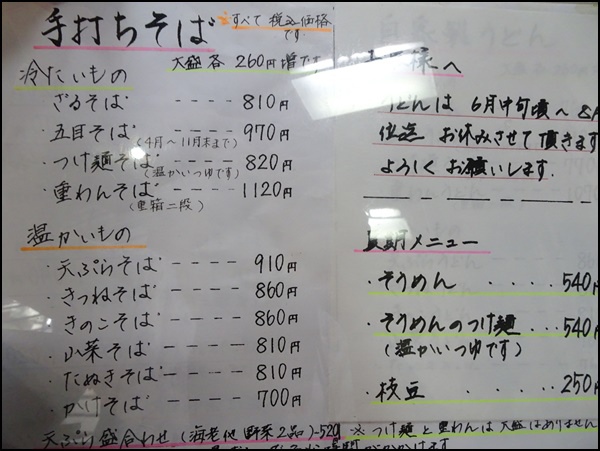 手打ちそば
すべて 税込価格です
大盛 各 260円増です
冷たいもの
・ざるそば ---- 810円
・五目そば ---- 970円
(4月〜11月末まで)
・つけ麺そば ---- 820円
(温かいつゆです)
・重わんそば ---- 1120円
(重箱二段)
温かいもの
・天ぷらそば ---- 910円
・きつねそば ---- 860円
・きのこそば ---- 860円
・山菜そば ---- 810円
・たぬきそば ---- 810円
・かけそば ---- 700円
天ぷら盛合わせ (海老他 野菜2品)-520
様へ
うどんは 6月中旬頃〜8月
位迄 お休みさせて頂きます
よろしくお願いします.
メニュー
・そうめん ‥‥ 540円
・そうめんのつけ麺 ‥‥ 540
(温かいつゆです)
・枝豆 ‥‥‥ 250円
※つけ麺と重わんは大盛はありません